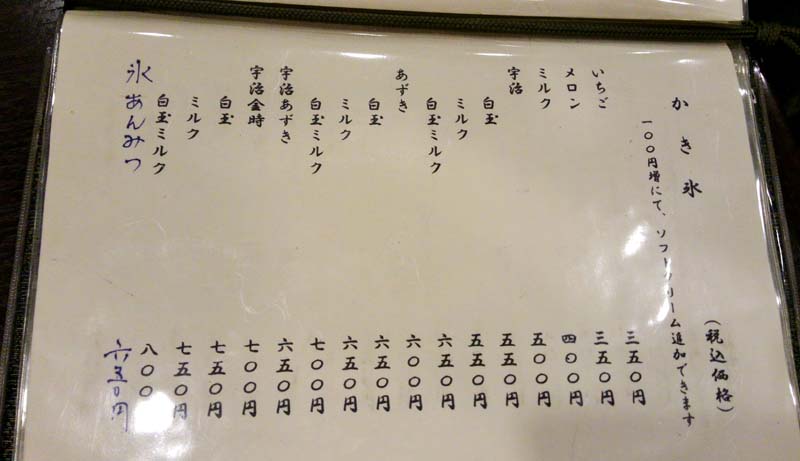 かき氷 (税込価格)
一〇〇円増にて、ソフトクリーム追加できます
いちご 三五〇円
メロン 三五〇円
ミルク 四〇〇円
宇治 五〇〇円
白玉 五五〇円
ミルク 五五〇円
白玉ミルク 六五〇円
あずき 六〇〇円
白玉 六五〇円
ミルク 六五〇円
白玉ミルク 七〇〇円
宇治あずき 六五〇円
宇治金時 七〇〇円
白玉 七五〇円
ミルク 七五〇円
白玉ミルク 八〇〇
氷あんみつ 六五〇円